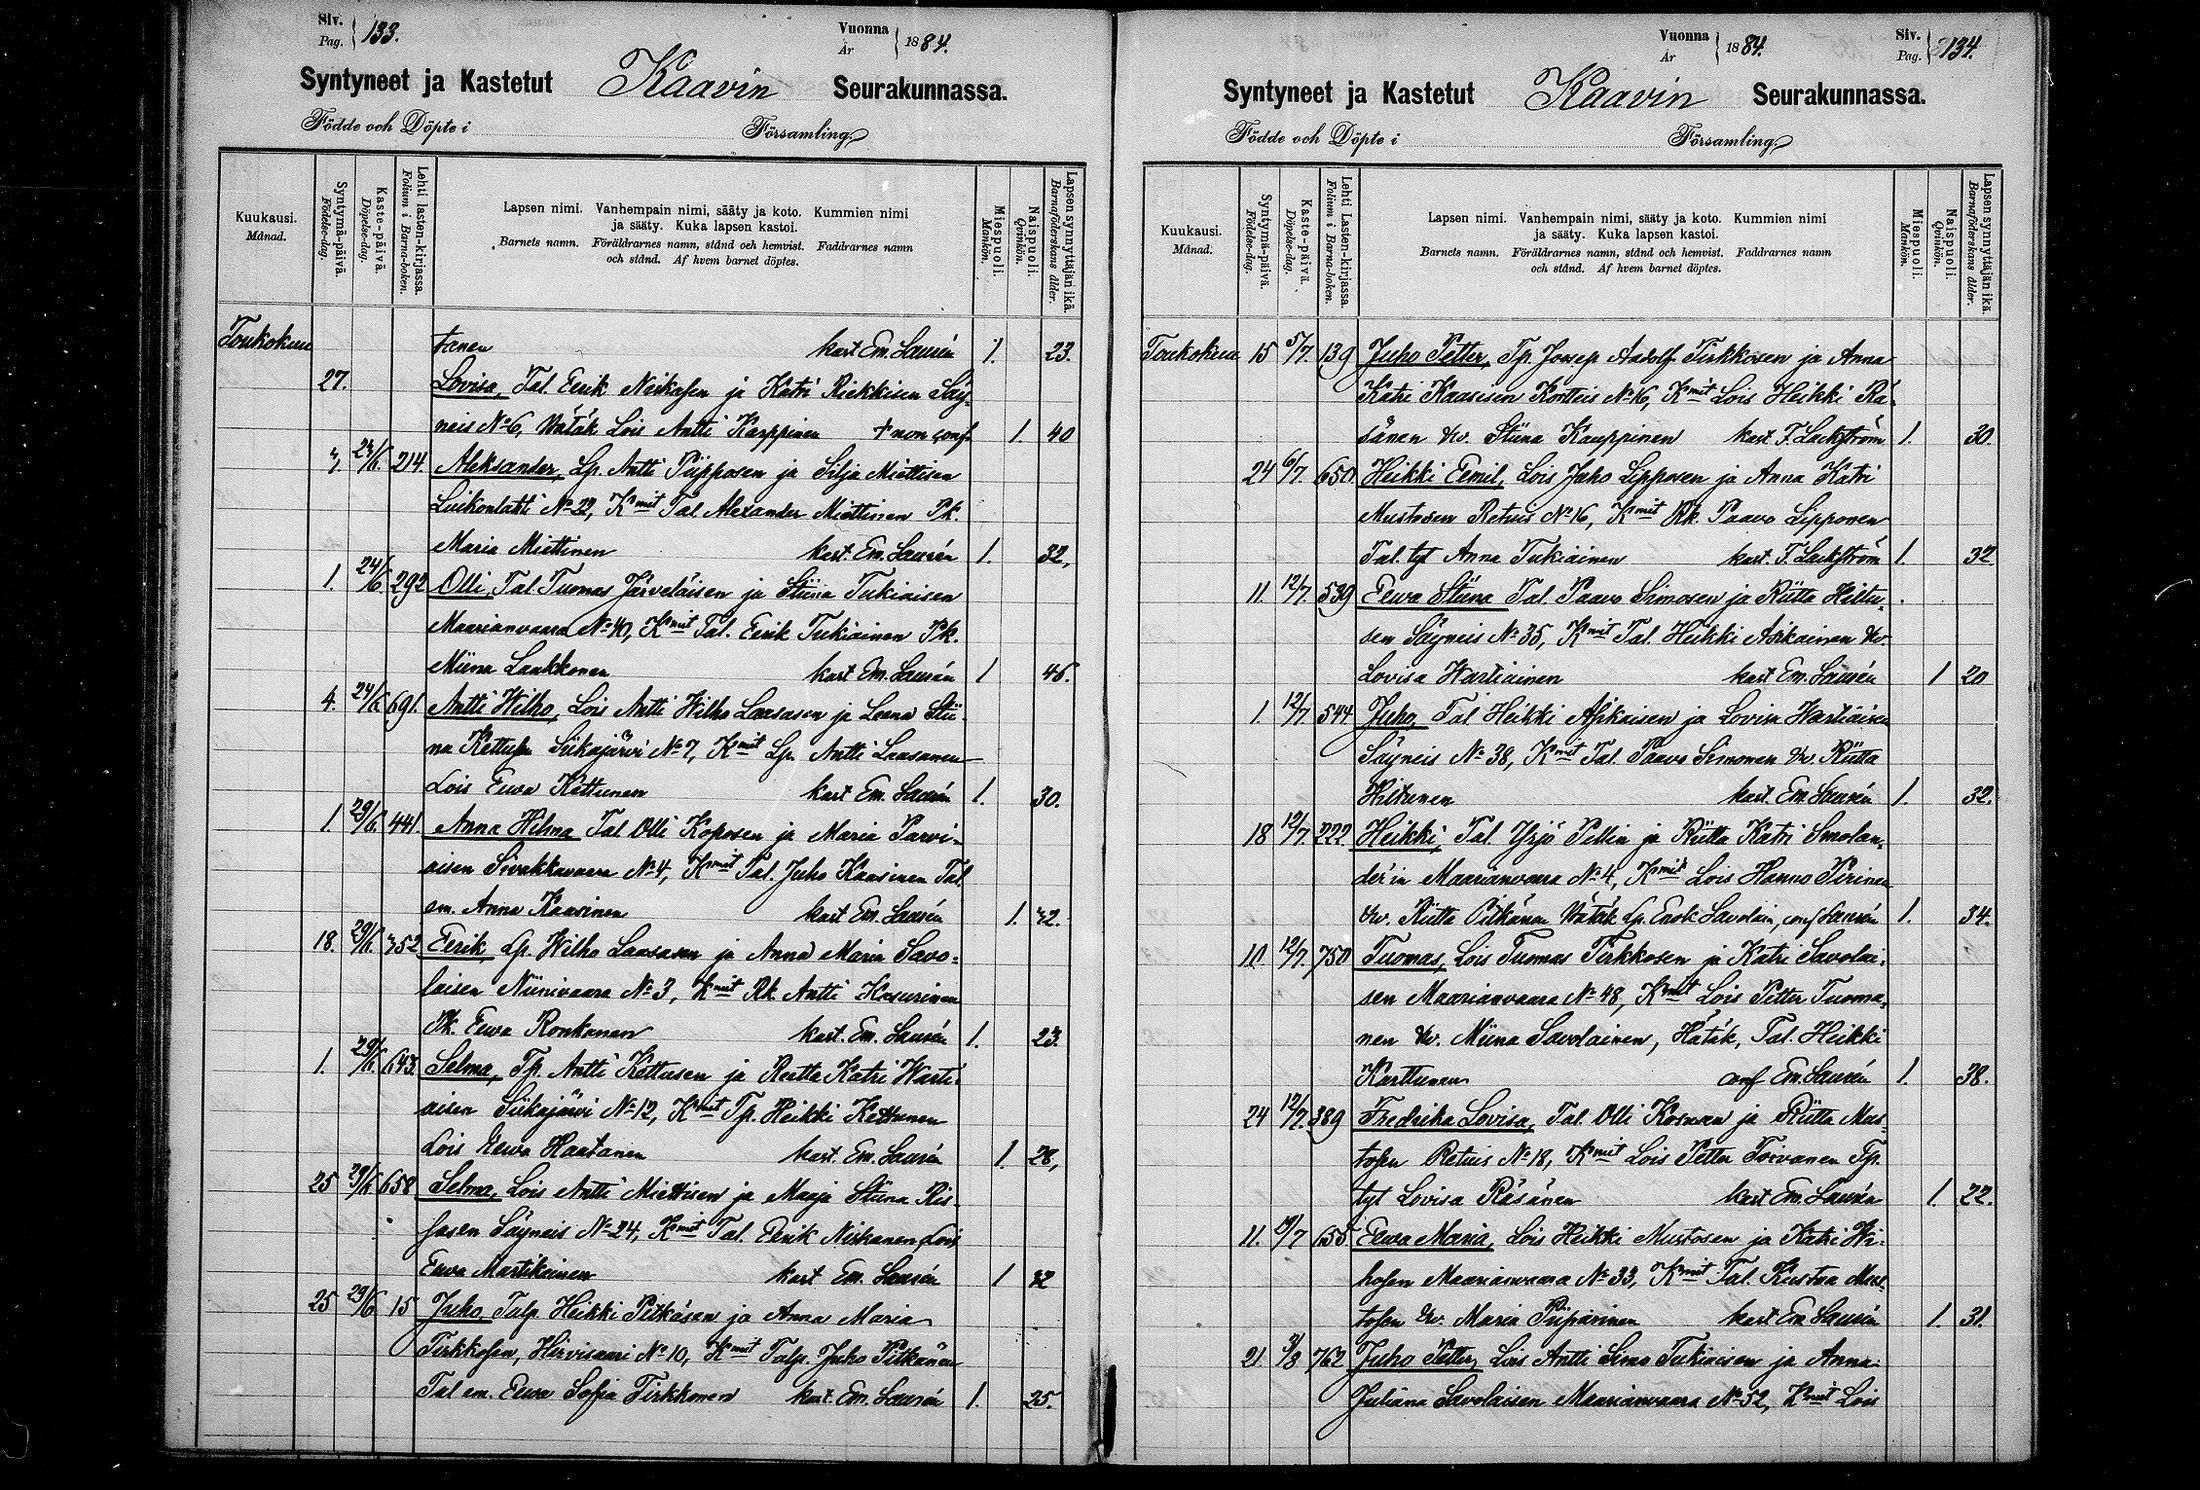 Siv.
Pag. 133.
Vuonna
År 1884.
Syntyneet ja Kastetut Kaavin Seurakunnassa.
Födde och Döpte i Församling
Kuukausi.
Månad.
Syntymä-päivä.
Födelse-dag.
Kaste-päivä.
Döpelse-dag.
Lehti lasten-kirjassa.
Folium i Barna-boken.
Lapsen nimi. Vanhempain nimi, sääty ja koto. Kummien nimi
ja sääty. Kuka lapsen kastoi.
Barnets namn. Föräldrarnes namn, stånd och hemvist. Faddrarnes namn
och stånd. Af hvem barnet döptes.
Miespuoli.
Mankön.
Naispuoli.
Qvinkön.
Lapsen synnyttäjän ikä.
Barnaföderskans ålder.
Toukokuu tanen kast Em. Laurén 1. 23.
27. Lovisa, Tal. Eerik ja Katri Riekkisen Säy-
neis No 6, Hätäk Lois Antti Karppinen + non conf. 1. 40
24/6. 214 Aleksander, Lp. Antti Piipposen ja Silja Miettisen
Luikonlahti No 22, Kmit Tal Alexander Miettinen Pk.
Maria Miettinen kast. Em. Laurén 1. 32,
1. 24/6. 292 Olli, Tal. Tuomas Järveläisen ja Stiina Tukiaisen
Maarianvaara No 40, Kmit Tal. Eerik Tukiainen Pk.
Miina Laakkonen kast Em. Laurén 1 46.
4. 24/6 691. Antti Wilho, Lois Antti Wilho Laasasen ja Leena Stii-
na Kettusen Siikajärvi No 7, Kmit Lp. Antti Laasanen
Lois Eewa Kettunen kast Em. Laurén 1. 30.
1. 29/6. 441. Anna Hilma Tal Olli Koposen ja Maria Parvi-
aisen Sivakkavaara No 4, Kmit Tal. Juho Kaasinen Tal.
em. Anna Kaasinen kast Em. Laurén 1. 42.
18. 29/6. 352 Eerik, Lp. Wilho Laasasen ja Anna Maria Savo-
laisen Niinivaara No 3, Kmit Rk. Antti Kosunen
Pk. Eewa Ronkanen kast. Em. Laurén 1. 23.
1. 29/6. 643. Selma, Tp. Antti Kettusen ja Reetta Katri Warti-
aisen Siikajärvi No 12, Kmit Tp. Heikki Kettunen
Lois Eewa Haatanen kast. Em. Laurén 1. 28,
25 29/6 658 Selma, Lois Antti Miettisen ja Maija Stiina Ris-
sasen Säyneis No 24, Kmit Tal. Eerik Niskanen Lois
Eewa Martikainen kast Em. Laurén 1 42
25 29/6 15 Juho, Talp. Heikki Pitkäsen ja Anna Maria
Tirkkosen, Hirvisaari No 10, Kmit Talp. Juho Pitkänen
Tal em. Eewa Sofia Tirkkonen kast. Em. Laurén 1. 25.
Vuonna
År 1884.
Siv.
Pag. 134.
Syntyneet ja Kastetut Kaavin Seurakunnassa.
Födde och Döpte i Församling
Kuukausi.
Månad.
Syntymä-päivä.
Födelse-dag.
Kaste-päivä.
Döpelse-dag.
Lehti Lasten-kirjassa.
Folium i Barna-boken.
Lapsen nimi. Vanhempain nimi, sääty ja koto. Kummien nimi
ja sääty. Kuka lapsen kastoi.
Barnets namn. Föräldrarnes namn, stånd och hemvist. Faddrarnes namn
och stånd. Af hvem barnet döptes.
Miespuoli.
Mankön.
Naispuoli.
Qvinkön.
Lapsen synnyttäjän ikä.
Barnaföderskans ålder.
Toukokuu 15 5/7. 139 Juho Petter, Tp. Joosep Aadolf Tirkkosen ja Anna
Katri Kaasisen Kortteis No 16, Kmit Lois Heikki Rä-
sänen Stiina Kauppinen kast. F. Lackström 1. 30.
24 6/7. 650 Heikki Eemil, Lois Juho Lipposen ja Anna Katri
Mustosen Retuis No 16, Kmit Rk. Paavo Lipponen
Tal. tyt Anna Tukiainen kast. F. Lackström 1. 32
11. 12/7. 539 Eewa Stiina Tal. Paavo Simosen ja Riitta Hiltu-
sen Säyneis No 35, Kmit Tal. Heikki Asikainen
Lovisa Wartiainen kast Em. Laurén 1 20
1. 12/7 544 Juho, Tal Heikki Asikaisen ja Lovisa Wartiaisen
Säyneis No 38, Kmit Tal. Paavo Simonen Riitta
Hiltunen kast. Em. Laurén 1. 32.
18 12/7. 222 Heikki, Tal. Yrjö Pellin ja Riitta Katri Smolan-
der'in Maarianvaara No 4, Kmit Lois Hanno Piirinen
Riitta Pitkänen Hätäk Lp. Enok Savolain, conf Laurén 1. 34.
10. 12/7. 750 Tuomas, Lois Tuomas Tirkkosen ja Katri Savolai-
sen Maarianvaara No 48, Kmit Lois Petter Tuoma-
nen Miina Savolainen, Hätäk, Tal. Heikki
Karttunen conf Em. Laurén 1. 38.
24 12/7. 389 Fredrika Lovisa, Tal. Olli Kosusen ja Riitta Mus-
tosen Retuis No 18, Kmit Lois Petter Toivanen Tp.
tyt Lovisa Räsänen kast Em. Laurén 1. 22.
11. 655 Eewa Maria, Lois Heikki Mustosen ja Katri Hi-
Maarianvaara No 33, Kmit Tal. Kustaa Mus-
tosen Maria Piiparinen kast Em. Laurén 1. 31.
21 3/8 762 Juho Petter, Lois Antti Simo Tukiaisen ja Anna
Juliana Savolaisen Maarianvaara No 52, Kmit Lois